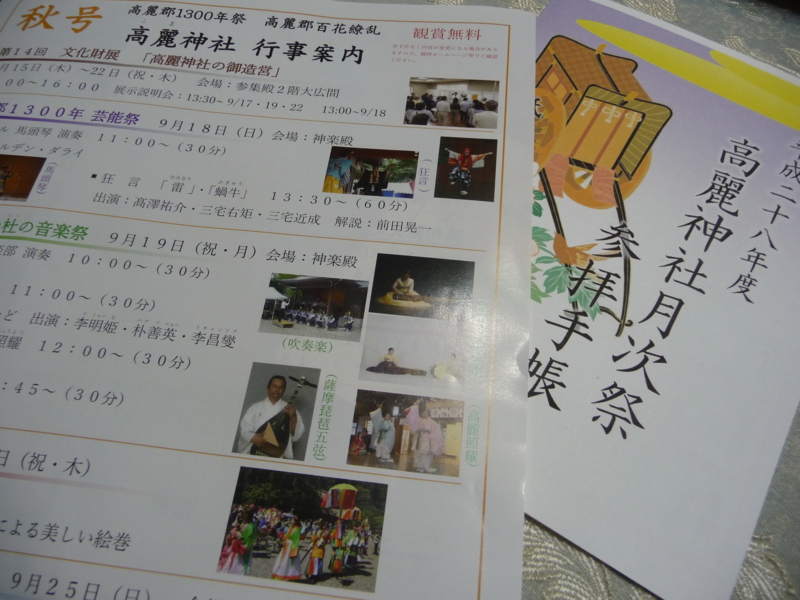 秋号
高麗郡1300年祭 高麗郡百花繚乱
高麗神社 行事案内
こま
観賞無料
第14回 文化財展 「高麗神社の御造営」
月15日(木)～22日(祝・木) 会場:参集殿2階大広間
00～16:00 展示説明会:13:30～ 9/17・19・22 13:00～9/18
郡1300年 芸能祭 9月18日(日) 会場:神楽殿
ル 馬頭琴 演奏 11:00～(30分)
ルデン・ダライ
(馬頭琴)
狂言 「雷」・「蝸牛」 13:30～(60分)
出演:高澤祐介・三宅右矩・三宅近成 解説:前田晃一
(狂言)
社の音楽祭 9月19日(祝・月) 会場:神楽殿
部 演奏 10:00～(30分)
11:00～(30分)
ど 出演:李明姫・朴善英・李昌燮
照耀 12:00～(30分)
:45～(30分)
(吹奏楽)
(薩摩琵琶五弦)
(高麗照耀)
日(祝・木)
による美しい絵巻
9月25日(日)
平成二十八年度
高麗神社月次祭
参拝手帳